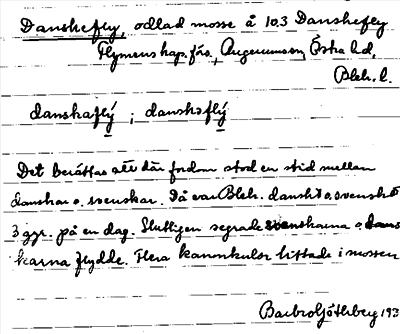 Danskefly, odlad mosse å 10.3 Danskefly
Flymens hap. förs., Augerumssn, Östra hd,
Blek. l.
danskaflý ; danskəflý
Det berättas att där fordom stod en strid mellan
danskar o. svenskar. Då var Blek. danskt o. svenskt
3 ggr. på en dag. Slutligen segrade svenskarna o. dans
karna flydde. Flera kanonkulor hittade i mossen
Barbro Göthberg 193